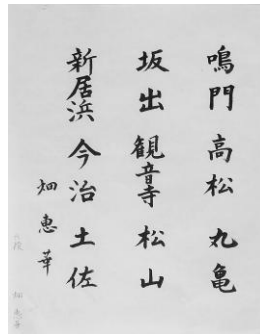 鳴門 高松 丸亀
坂出 観音寺 松山
新居浜 今治 土佐
畑 恵華